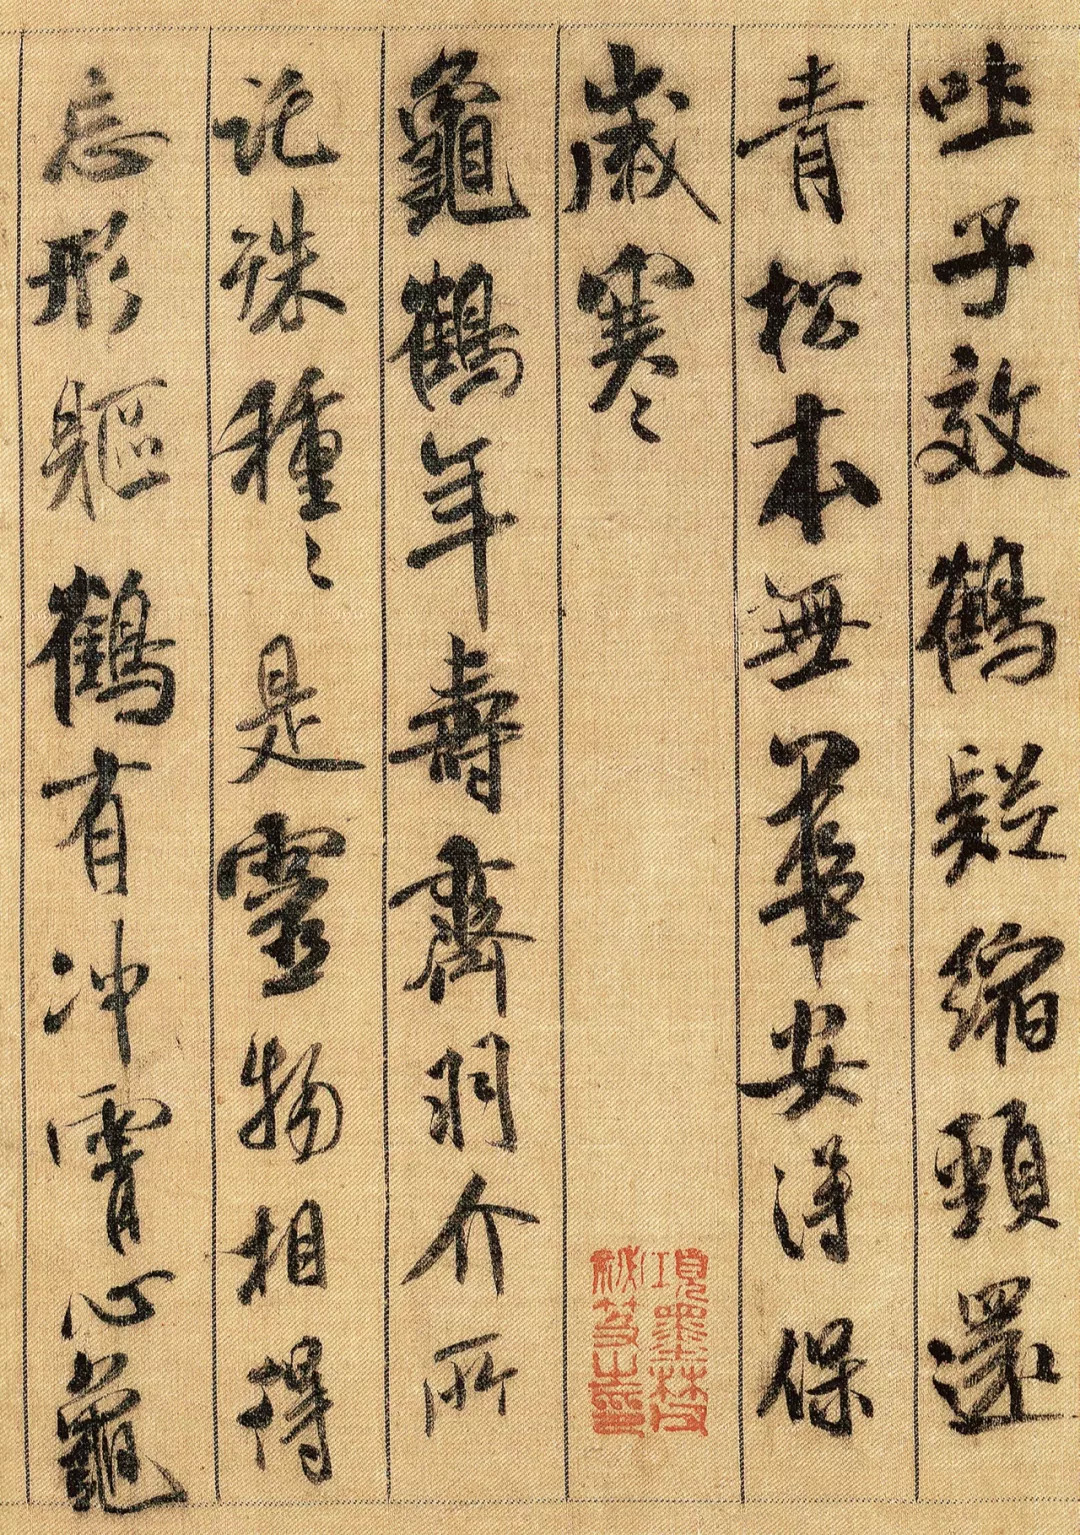 吐子效鶴疑縮頸還
青松本無華安得保
歲寒
項墨林父
秘笈之印
龜鶴年壽齊羽介所
託殊種〻是靈物相得
忘形軀鶴有冲霄心龜